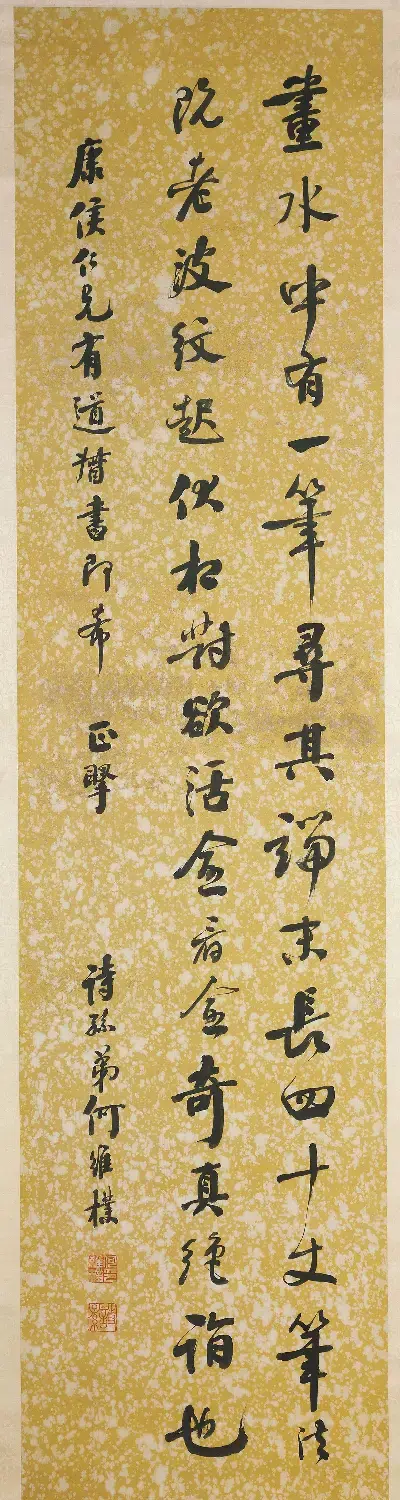 畫水中有一筆尋其端末長四十丈筆法
既老波紋起伏相對欲活愈看愈奇真絶詣也
康侯仁兄有道揩書即希 正擥
詩孫弟何維樸